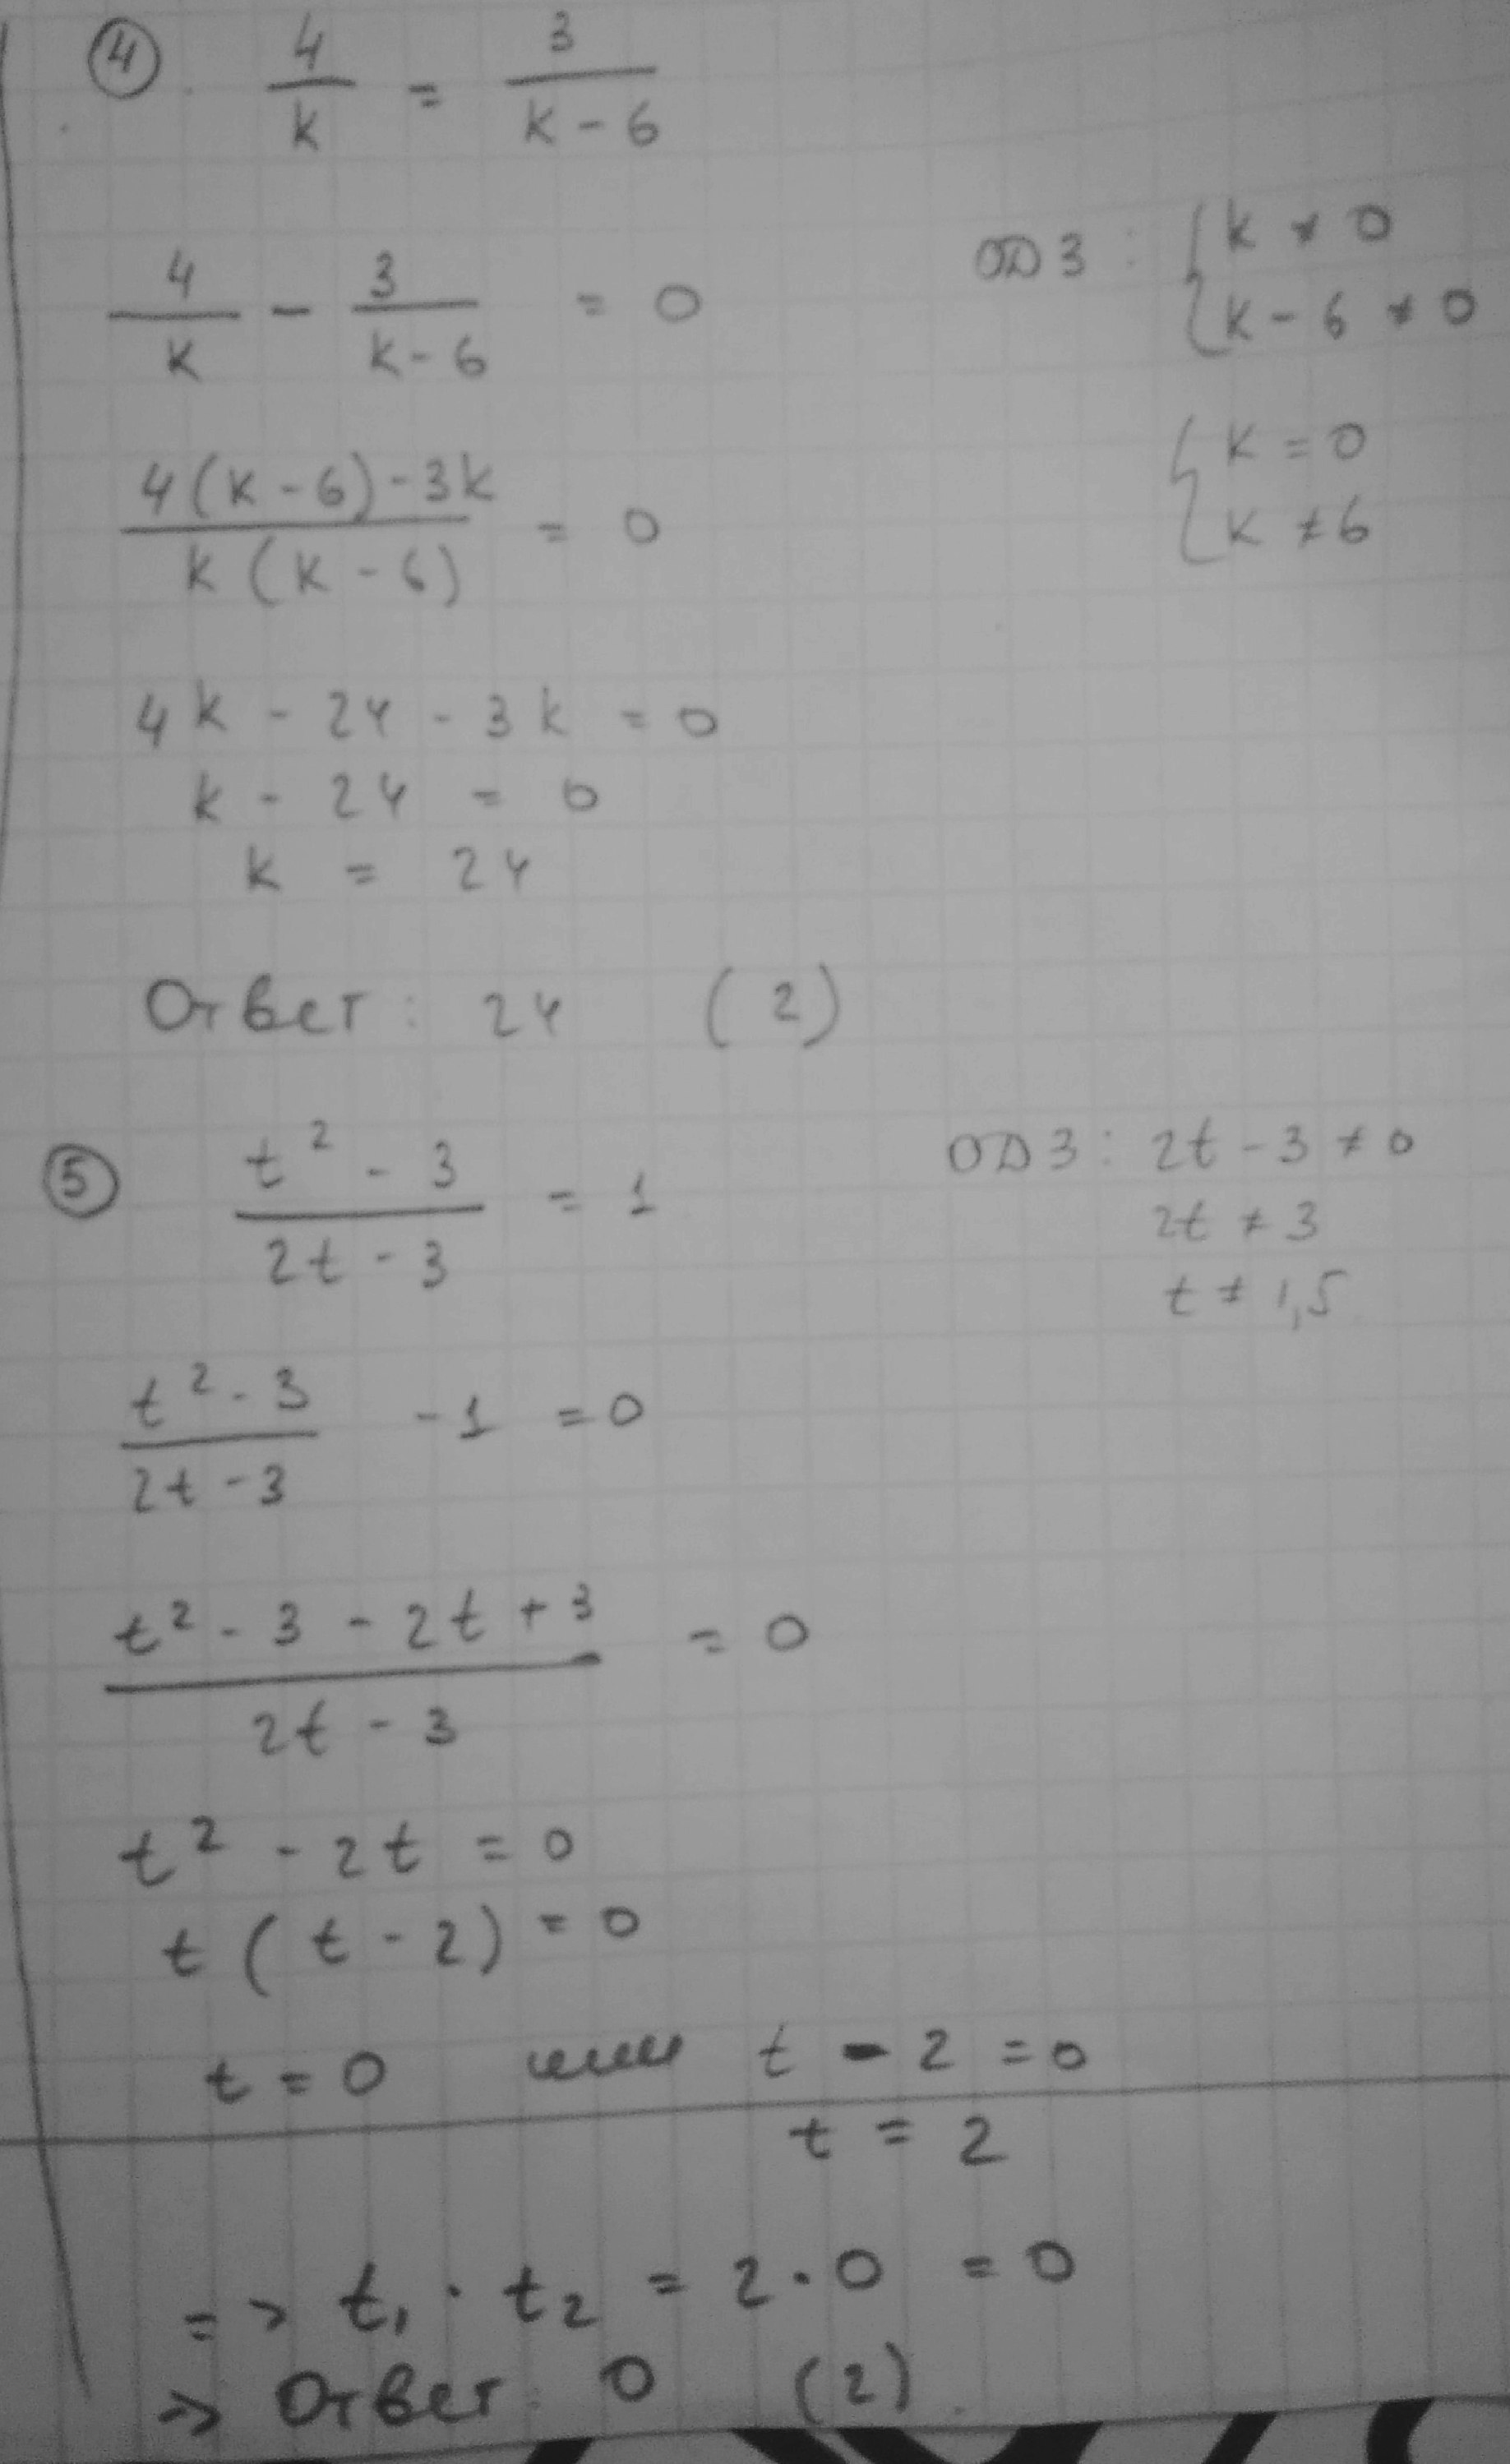 ④. 4/k = 3/(k - 6)
4/k - 3/(k - 6) = 0
ОДЗ: { k ≠ 0
k - 6 ≠ 0
{ k = 0
k ≠ 6
(4(k - 6) - 3k)/(k(k - 6)) = 0
4k - 24 - 3k = 0
k - 24 = 0
k = 24
Ответ: 24 (2)
⑤ (t² - 3)/(2t - 3) = 1
ОДЗ: 2t - 3 ≠ 0
2t ≠ 3
t ≠ 1,5
(t² - 3)/(2t - 3) - 1 = 0
(t² - 3 - 2t + 3)/(2t - 3) = 0
t² - 2t = 0
t(t - 2) = 0
t = 0 или t - 2 = 0
t = 2
=> t₁ · t₂ = 2 · 0 = 0
=> Ответ: 0 (2).